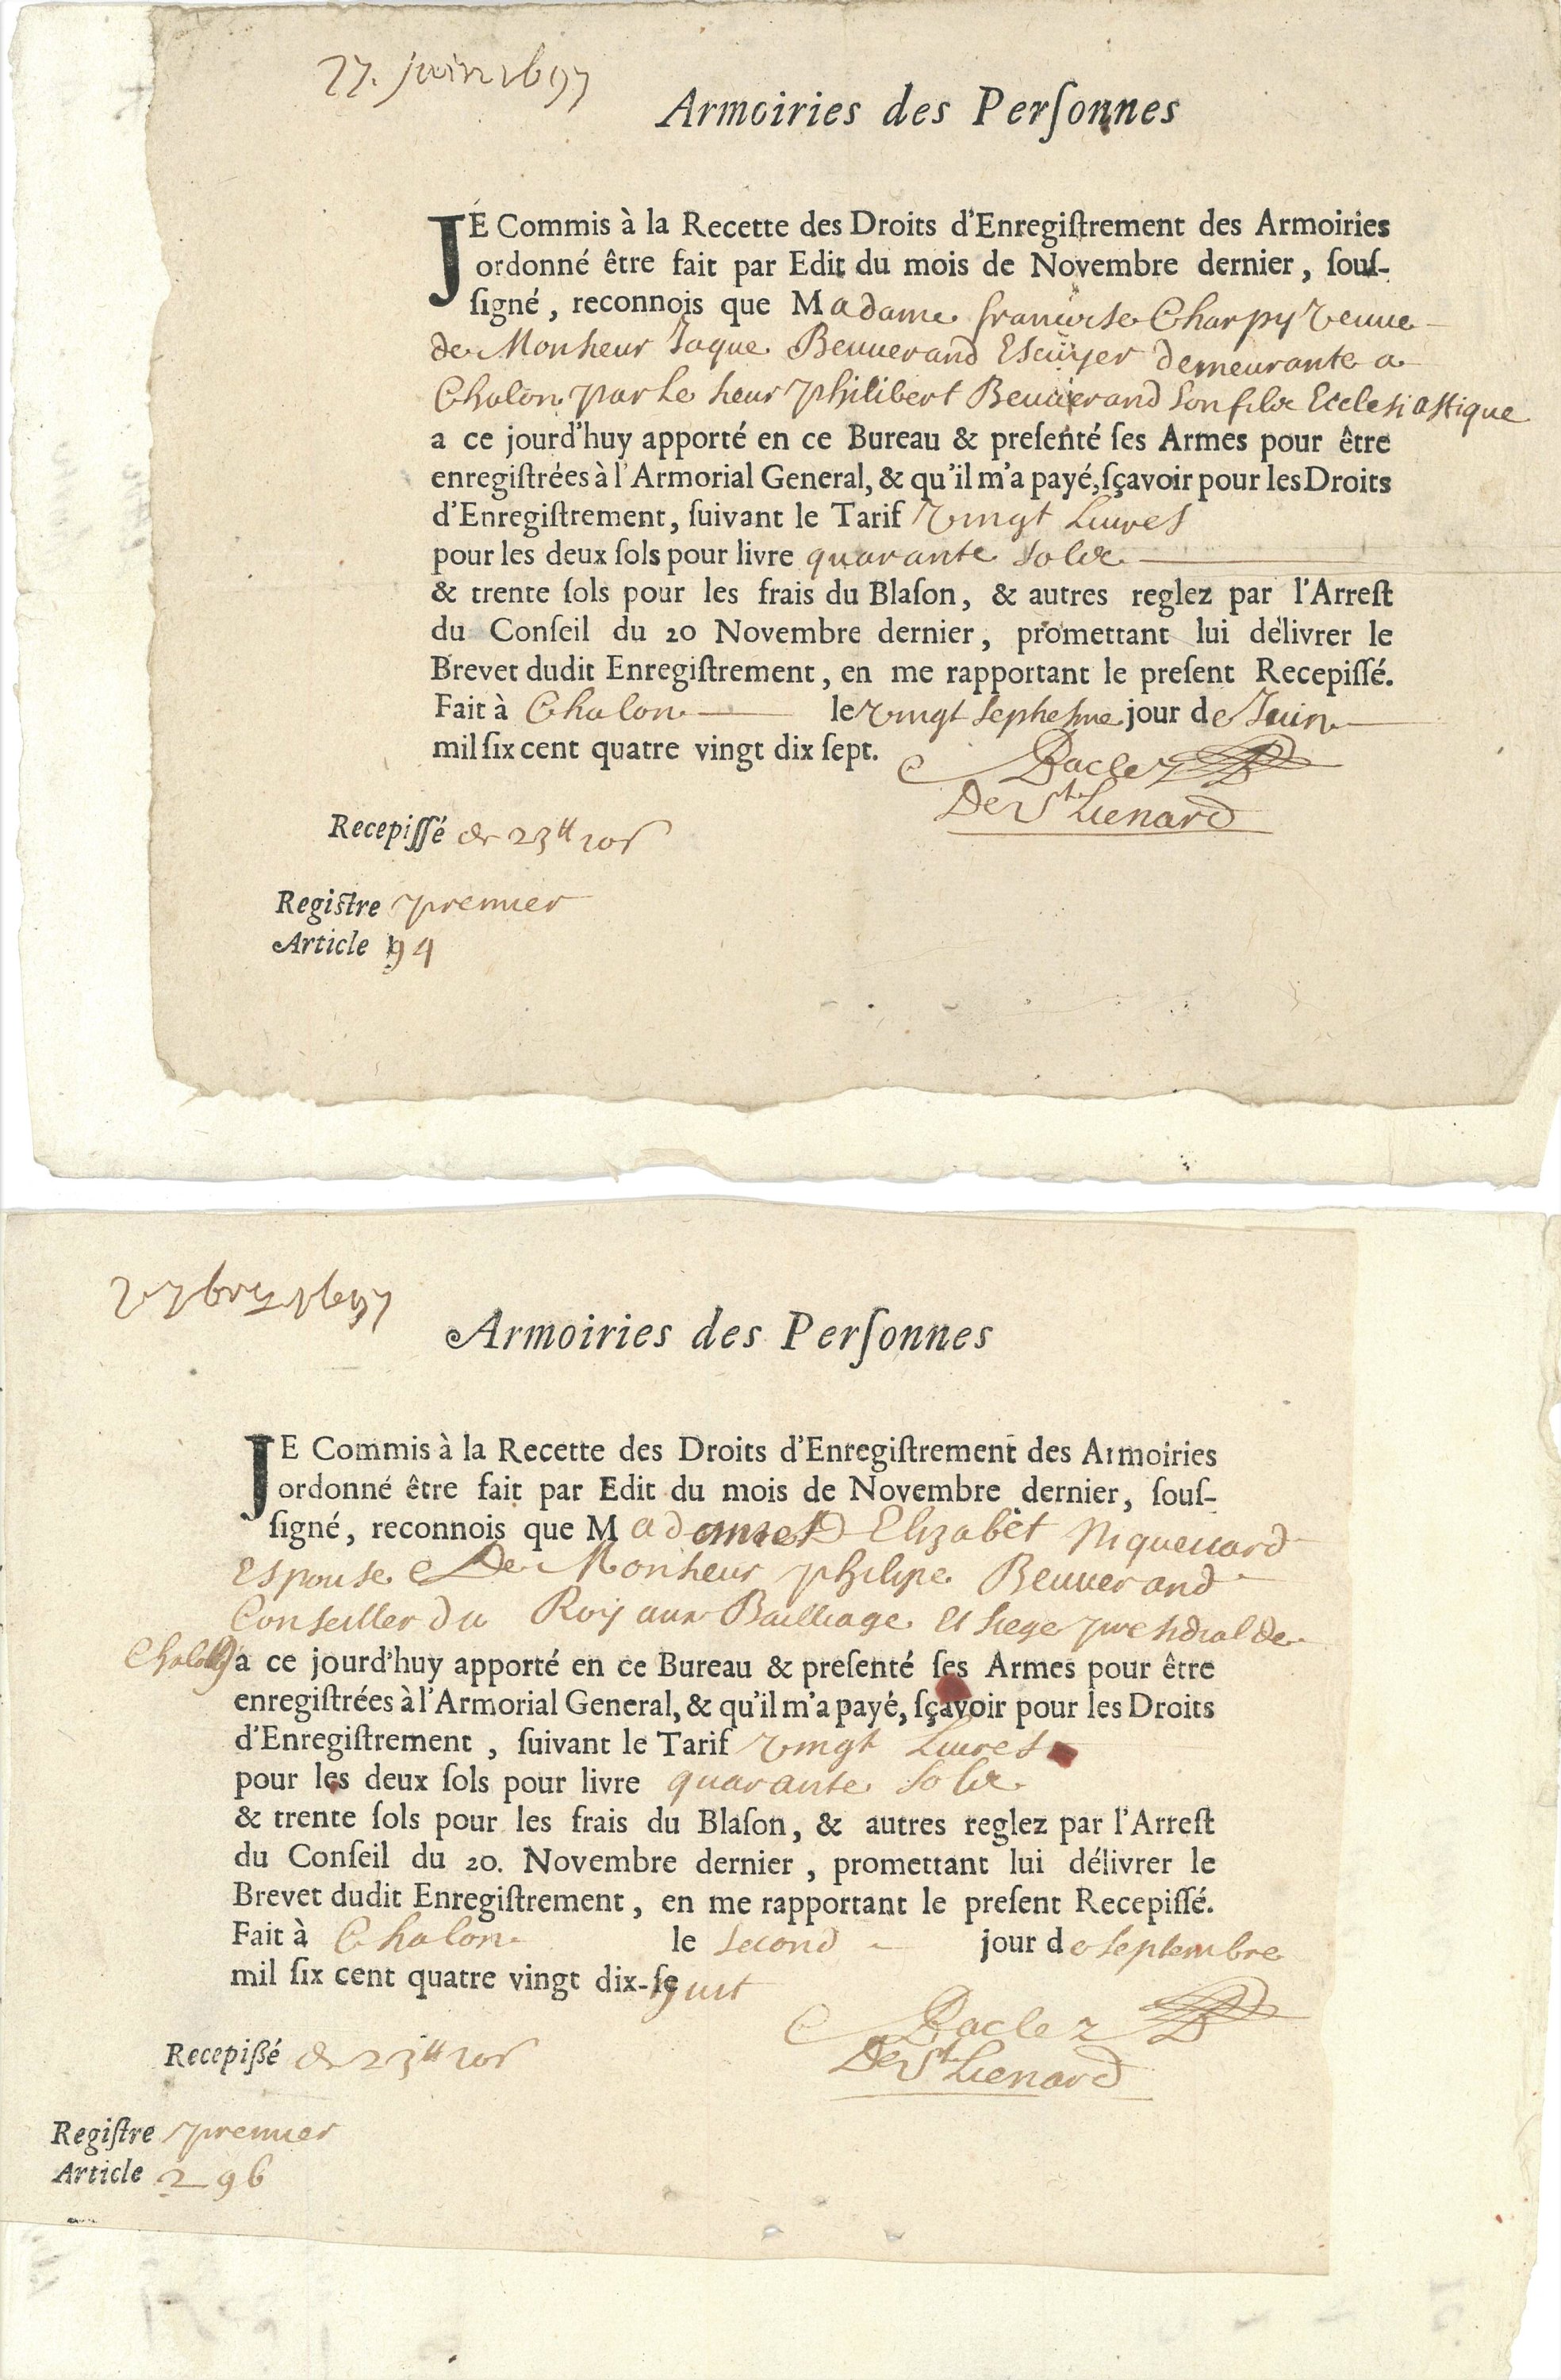 27. juin 1697
Armoiries des Perſonnes
JE Commis à la Recette des Droits d'Enregiſtrement des Armoiries
ordonné être fait par Edit du mois de Novembre dernier, ſouſ-
ſigné, reconnois que Madame francoise Charpy veuue
de Monsieur Jaque Beuuerand Escuÿer demeurante a
Chalon par Le sieur philibert Beuuerand Son filx Ecclesiastique
a ce jourd'huy apporté en ce Bureau & preſenté ſes Armes pour être
enregiſtrées à l'Armorial General, & qu'il m'a payé, ſçavoir pour les Droits
d'Enregiſtrement, ſuivant le Tarif vingt Liures
pour les deux ſols pour livre quarante solx
& trente ſols pour les frais du Blaſon, & autres reglez par l'Arreſt
du Conſeil du 20 Novembre dernier, promettant lui délivrer le
Brevet dudit Enregiſtrement, en me rapportant le preſent Recepiſſé.
Fait à Chalon le vingt septiesme jour de Juin
mil ſix cent quatre vingt dix ſept.
Baclez
De St Lienard
Recepiſſé de 23tt 10s
Regiſtre premier
Article 94
2 7bre 1697
Armoiries des Perſonnes
JE Commis à la Recette des Droits d'Enregiſtrement des Armoiries
ordonné être fait par Edit du mois de Novembre dernier, ſouſ-
ſigné, reconnois que Madame Elizabet Niqueuard
Espouse De Monsieur philipe Beuuerand
Conseiller du Roy aux Bailliage Et siege presidial de
Chalon a ce jourd'huy apporté en ce Bureau & preſenté ſes Armes pour être
enregiſtrées à l'Armorial General, & qu'il m'a payé, ſçavoir pour les Droits
d'Enregiſtrement, ſuivant le Tarif vingt Liures
pour les deux ſols pour livre quarante solx
& trente ſols pour les frais du Blaſon, & autres reglez par l'Arreſt
du Conſeil du 20. Novembre dernier, promettant lui délivrer le
Brevet dudit Enregiſtrement, en me rapportant le preſent Recepiſſé.
Fait à Chalon le second jour de septembre
mil ſix cent quatre vingt dix-huit
Baclez
De St Lienard
Recepißé de 23tt 10s
Regiſtre premier
Article 296